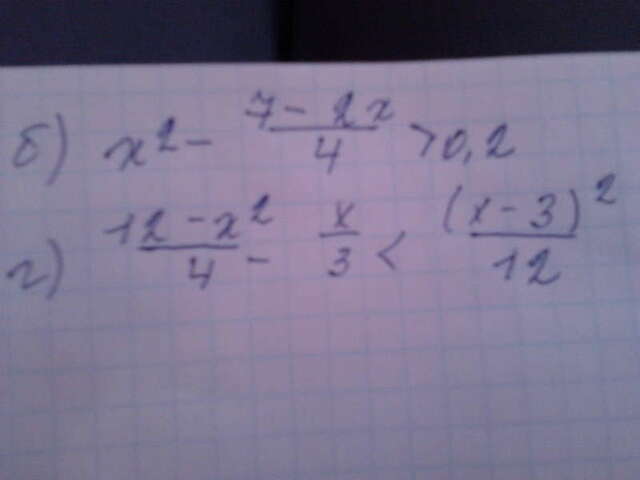 б) x² - (7 - 2x)/4 > 0,2
г) (12 - x²)/4 - x/3 < (x - 3)²/12